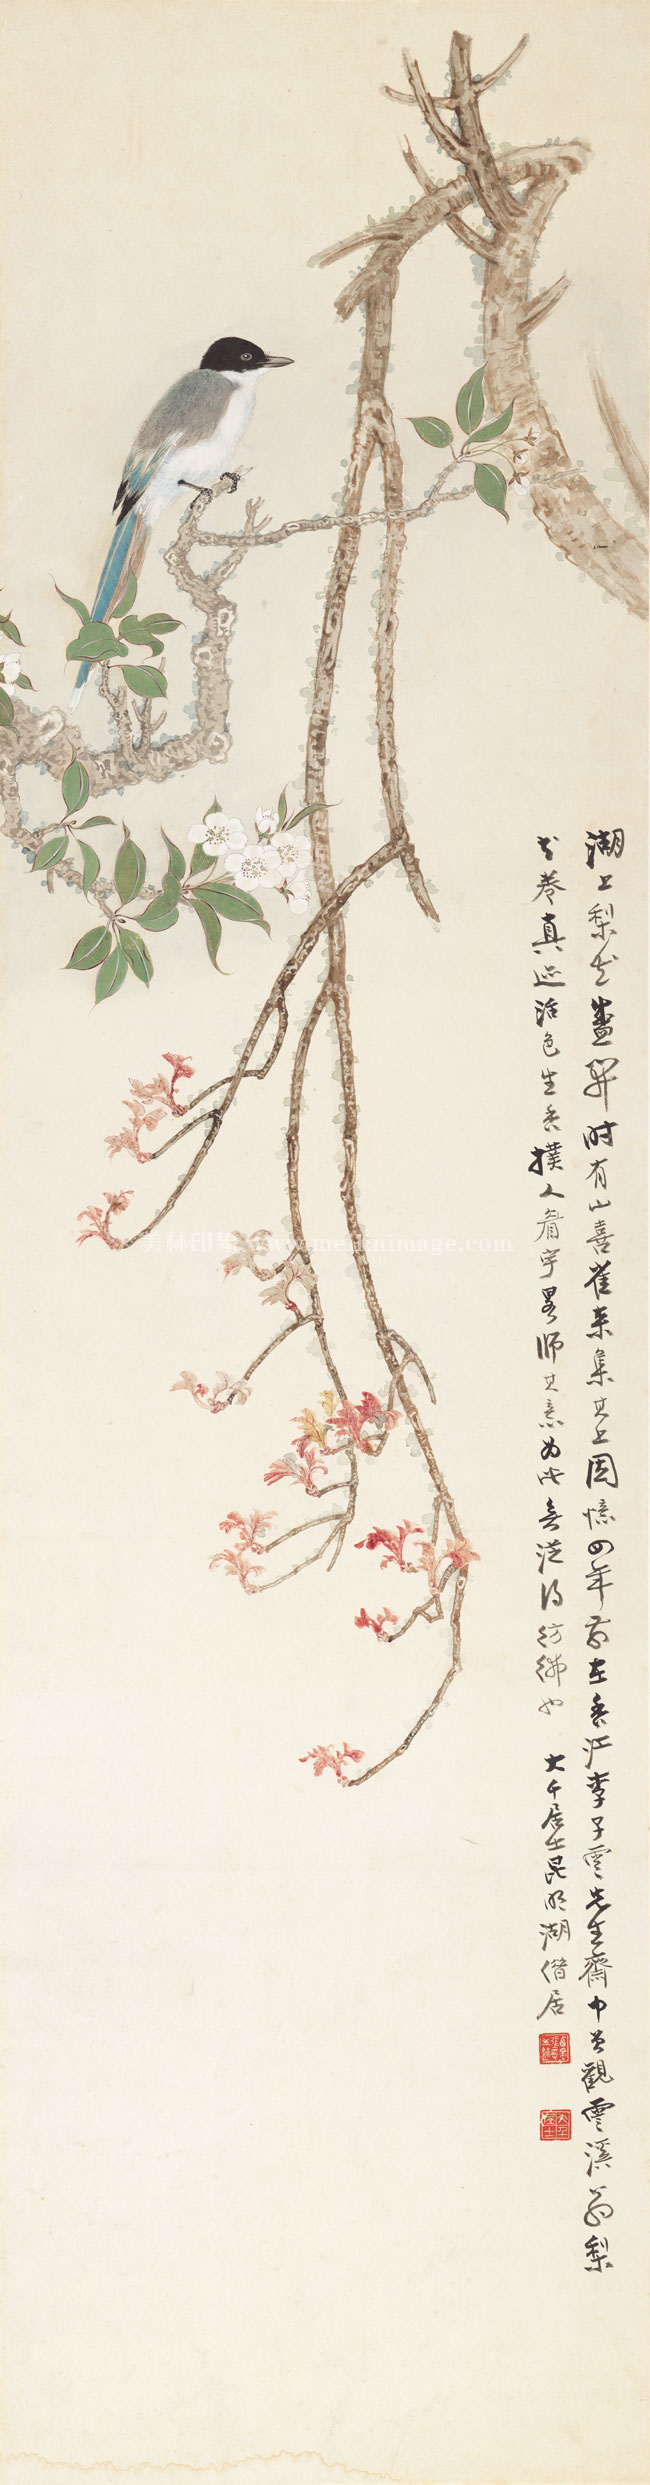 湖上梨花盛開時有山喜雀來集其上因憶四年前在香江李子雲先生齋中曾觀雲溪翁梨
花卷真迹活色生香撲人眉宇畧師其意為此無從得彷彿也
大千居士昆明湖借居
美林印象 www.meilinimage.com